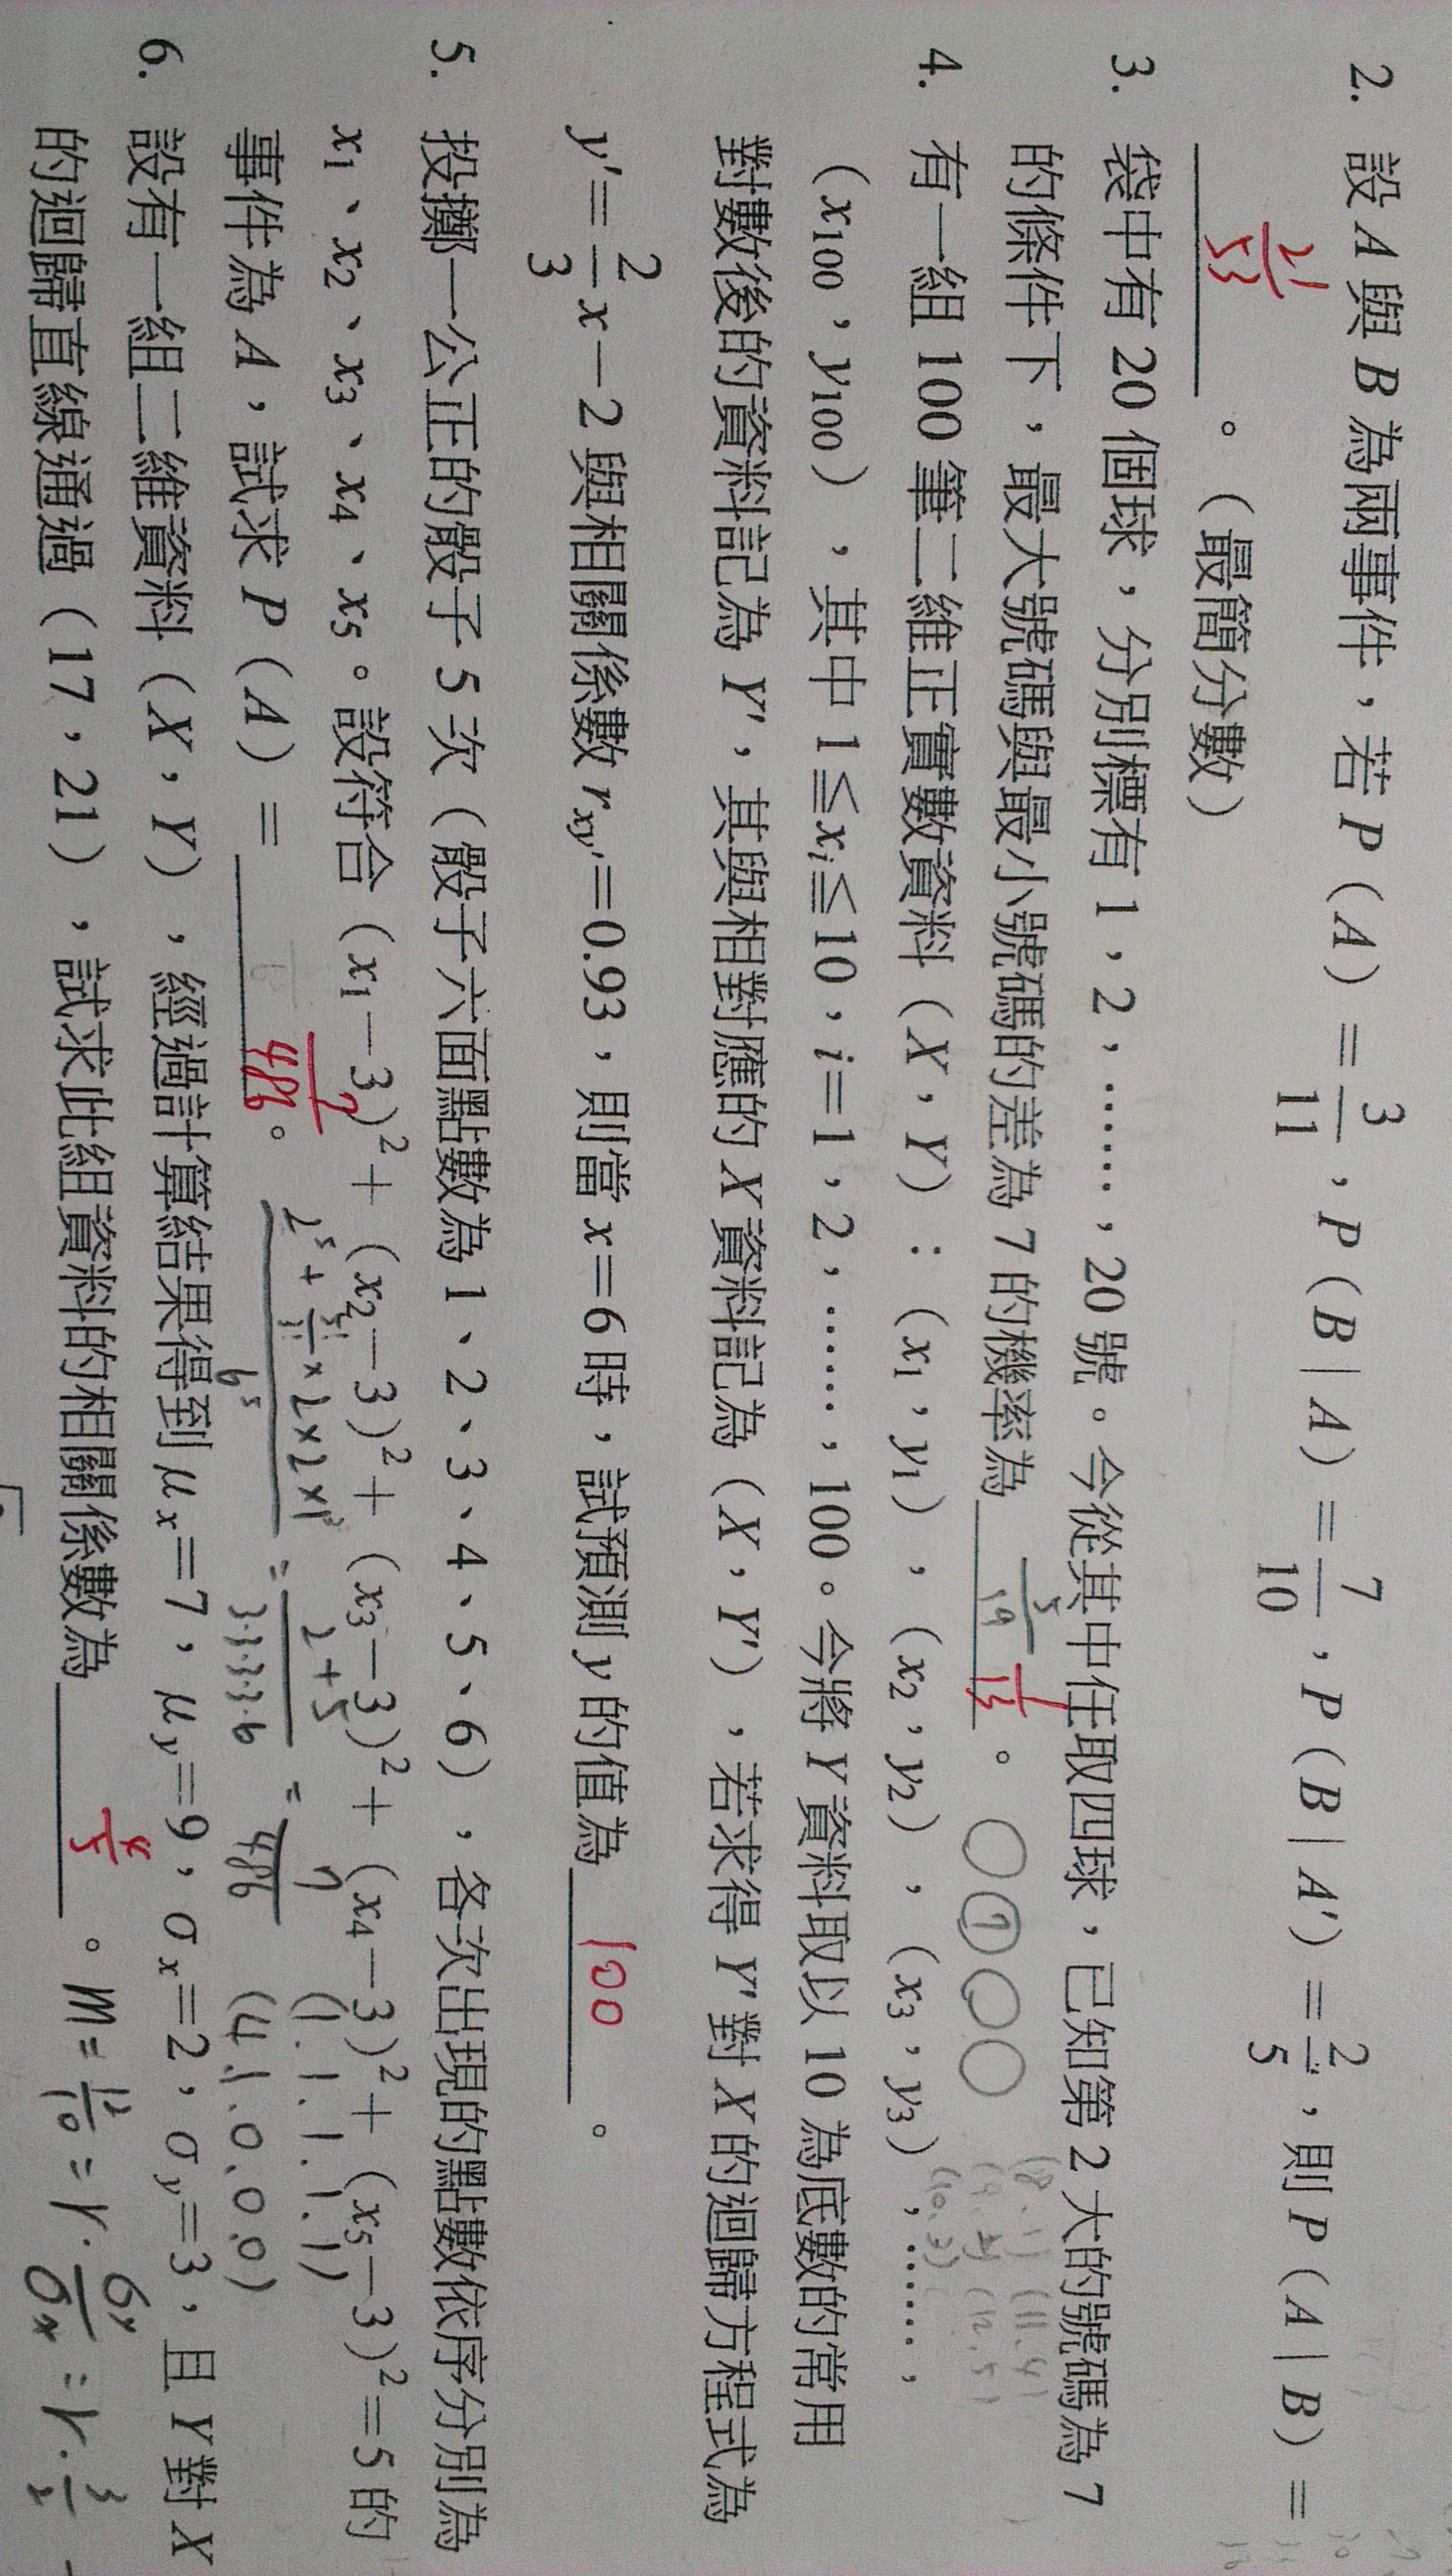 2. 設 A 與 B 為兩事件,若 P(A)=3/11,P(B|A)=7/10,P(B|A')=2/5,則 P(A|B)=
21/53 。(最簡分數)
3. 袋中有 20 個球,分別標有 1,2,……,20 號。今從其中任取四球,已知第 2 大的號碼為 7
的條件下,最大號碼與最小號碼的差為 7 的機率為 1/13 。
4. 有一組 100 筆二維正實數資料(X,Y):(x1,y1),(x2,y2),(x3,y3),……,
(x100,y100),其中 1≦xi≦10,i=1,2,……,100。今將 Y 資料取以 10 為底數的常用
對數後的資料記為 Y',其與相對應的 X 資料記為(X,Y'),若求得 Y' 對 X 的迴歸方程式為
y'=2/3 x-2 與相關係數 rxy'=0.93,則當 x=6 時,試預測 y 的值為 100 。
5. 投擲一公正的骰子 5 次(骰子六面點數為 1、2、3、4、5、6),各次出現的點數依序分別為
x1、x2、x3、x4、x5。設符合(x1-3)²+(x2-3)²+(x3-3)²+(x4-3)²+(x5-3)²=5 的
事件為 A,試求 P(A)= 7/486 。
(1.1.1.1.1)
(4.1.0.0.0)
6. 設有一組二維資料(X,Y),經過計算結果得到 μx=7,μy=9,σx=2,σy=3,且 Y 對 X
的迴歸直線通過(17,21),試求此組資料的相關係數為 4/5 。 m=12/10=r·σy/σx=r·3/2